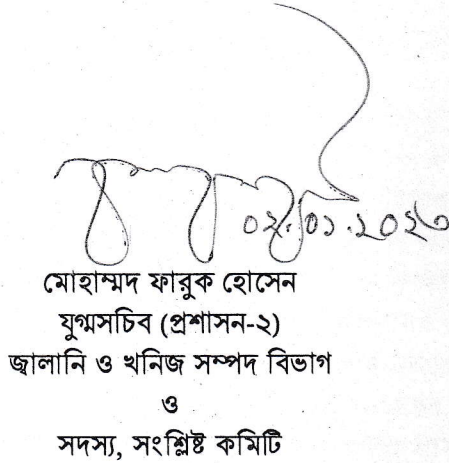 ০২.০১.২০২৩
মোহাম্মদ ফারুক হোসেন
যুগ্মসচিব (প্রশাসন-২)
জ্বালানি ও খনিজ সম্পদ বিভাগ
ও
সদস্য, সংশ্লিষ্ট কমিটি